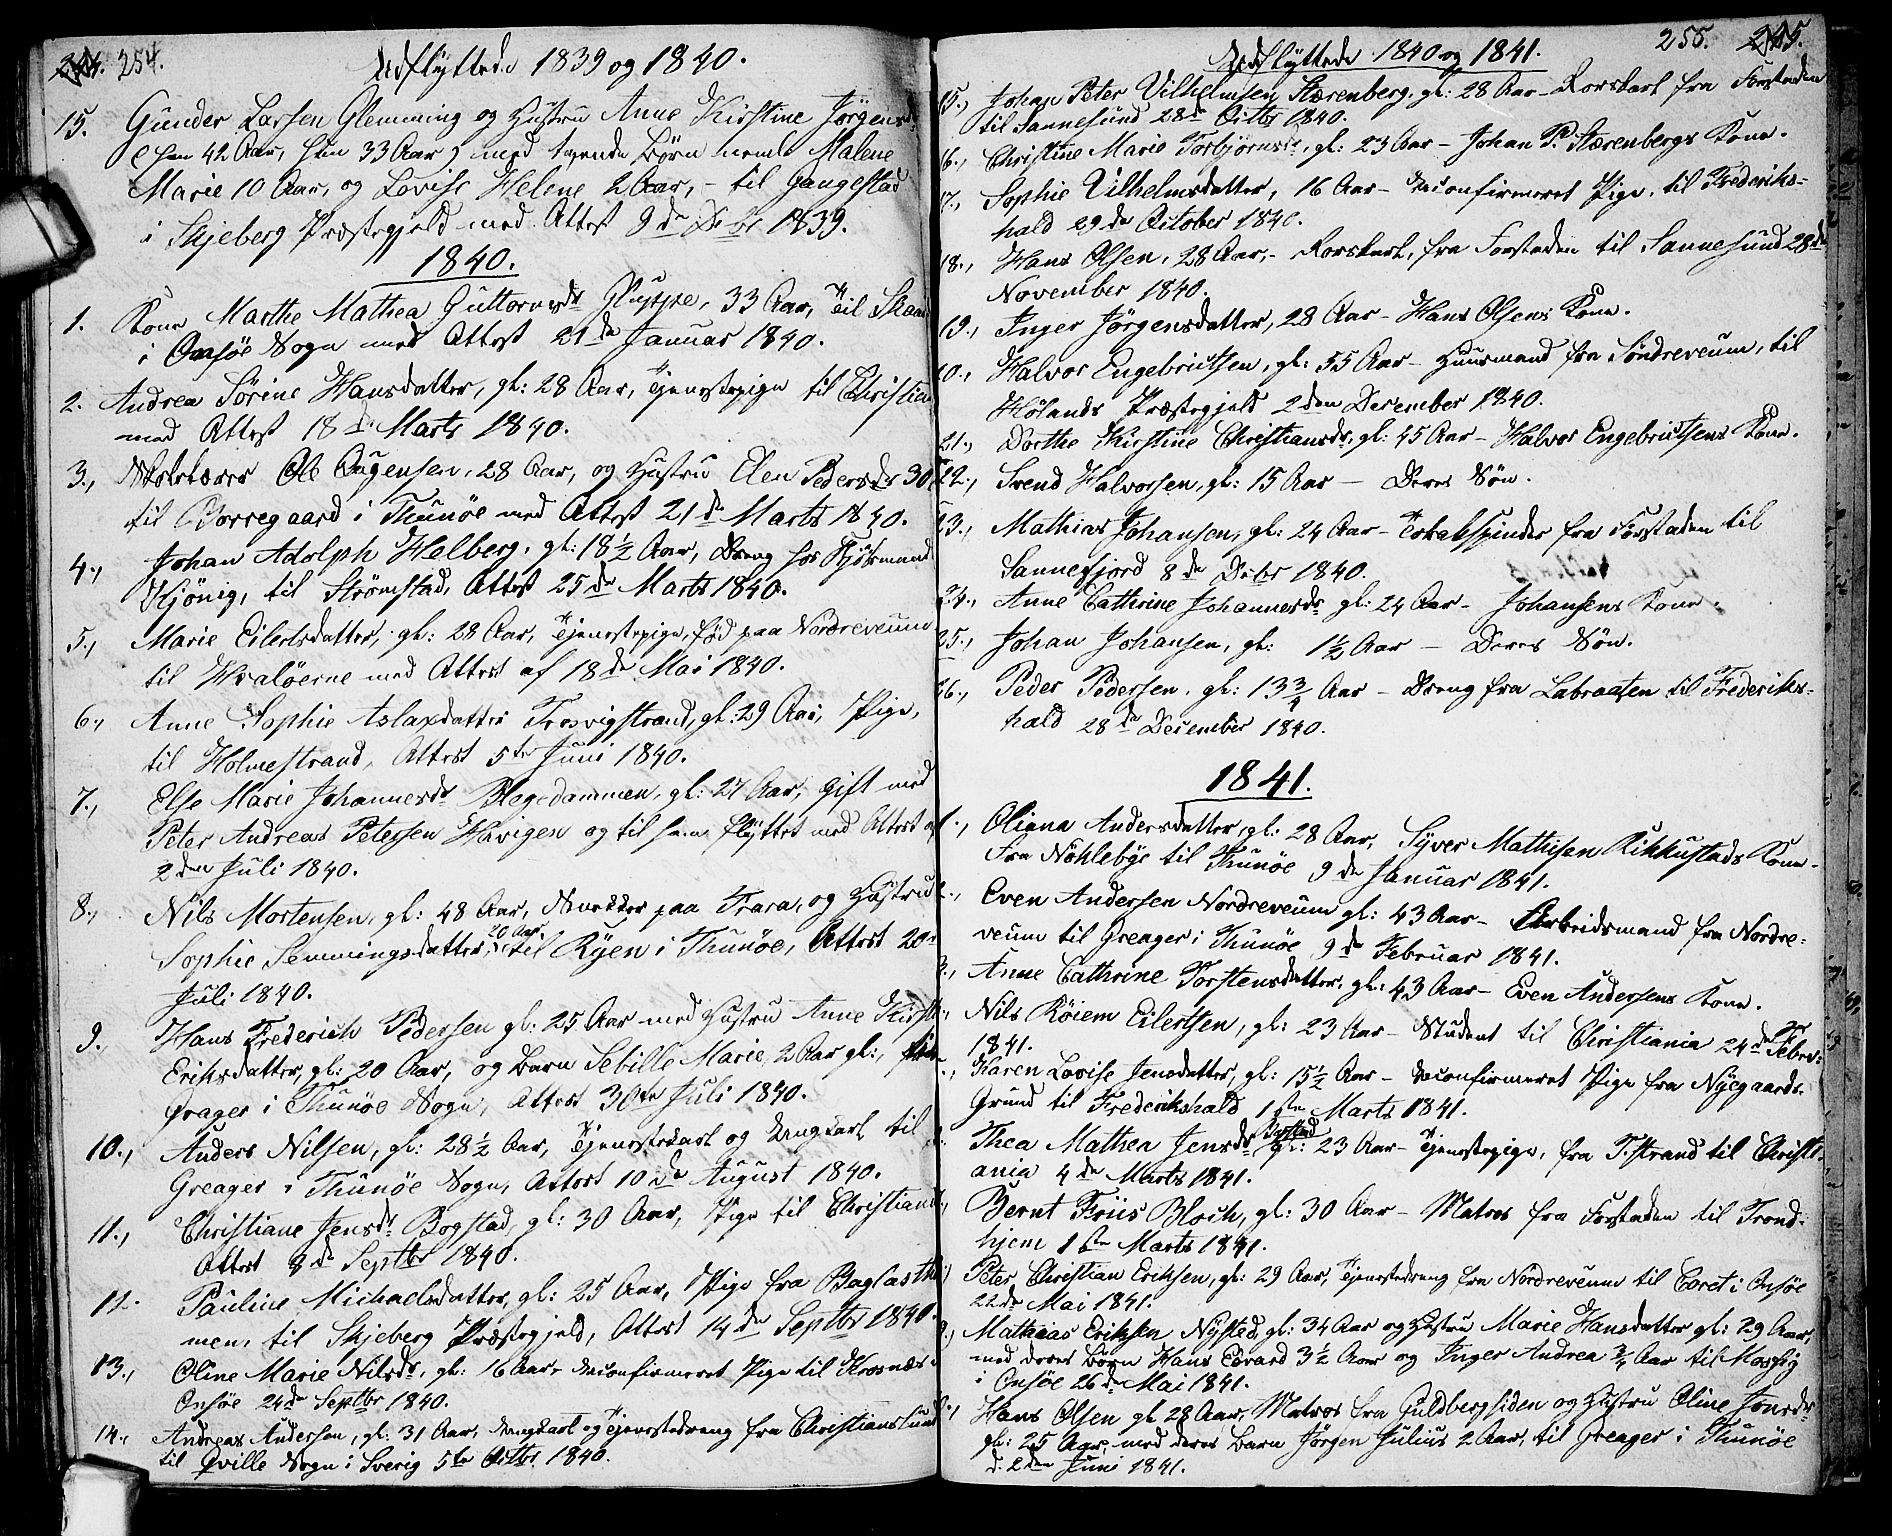 254.
Udflyttede 1839 og 1840.
15. Gunder Larsen Glemming og Hustru Anne Kirstine Jörgensd
(han 42 Aar, hun 33 Aar) med tvende Börn neml: Malene
Marie 10 Aar, og Lovise Helene 2 Aar, - til Hangestad
i Skjeberg Præstegjeld med Attest 9de Decbr 1839.
1840.
1. Kone Marthe Mathea Guttormsdr Gluppe, 33 Aar, til
i Onsöe Sogn med Attest 21de Januar 1840.
2. Andrea Sörine Hansdatter, gl: 28 Aar, Tjenestepige til Christian
med Attest 18de Marts 1840.
3., Ole Augensen, 28 Aar, og Hustru Elen Pedersdr 30
til Borregaard i Thunöe med Attest 21de Marts 1840.
4., Johan Adolph Halberg, gl: 18½ Aar, Dreng hos Kjöbmand
Kjönig, til Strömstad, Attest 25de Marts 1840.
5., Marie Eilertsdatter, gl: 28 Aar, Tjenestepige, född paa Nordreveum
til Hvalöerne med Attest af 18de Mai 1840.
6., Anne Sophie Aslaxdatter Trosvigstrand, gl: 29 Aar, Pige,
til Holmestrand, Attest 5te Juni 1840.
7., Else Marie Johannesdr Blegedammen, gl: 27 Aar, gift med
Peter Andreas Petersen Havigen og til ham flyttet med Attest af
2den Juli 1840.
8., Nils Mortensen, gl: 48 Aar, paa Trara, og Hustru
Sophie Semmingsdatter, 20 Aar, til Ryen i Thunöe, Attest 20
Juli 1840.
9. Hans Frederich Pedersen gl: 25 Aar med Hustru Anne Kirst
Eriksdatter, gl: 20 Aar, og Barn Sebille Marie, 2 Aar gl:,
Grager i Thunöe Sogn, Attest 30te Juli 1840.
10., Anders Nilsen, gl: 28½ Aar, Tjenestekarl og Ungkarl til
Greager i Thunöe Sogn, Attest 10de August 1840.
11., Christiane Jensdr Bogstad, gl: 30 Aar, Pige til Christiani
Attest 8de Septbr 1840.
12. Pauline Michaelsdatter, gl: 25 Aar, Pige fra
men, til Skjeberg Præstegjeld, Attest 14de Septbr 1840.
13., Oline Marie Nilsdr, gl: 16 Aar, uconfirmeret Pige til Krosnæs i
Onsöe 24de Septbr 1840.
14., Andreas Andersen, gl: 31 Aar, Ungkarl og Tjenestedreng fra Christianssund
til Qville Sogn i Sverig 5te Octbr 1840.
255.
Udflyttede 1840 og 1841.
15., Johan Peter Vilhelmsen Stærenberg, gl: 28 Aar - Rorskarl fra Forstaden
til Sannesund 28de Octbr 1840.
16., Christine Marie Torbjörnsdr, gl: 23 Aar - Johan P. Stærenbergs Kone.
17., Sophie Vilhelmsdatter, 16 Aar - uconfirmeret Pige, til Frederiks-
hald 29de October 1840.
18., Hans Olsen, 28 Aar, - Rorskarl, fra Forstaden til Sannesund 28de
November 1840.
19., Inger Jörgensdatter, 28 Aar - Hans Olsens Kone.
20., Halvor Engebrittsen, gl: 55 Aar - Huusmand fra Söndreveum, til
Hölands Præstegjeld 2den December 1840.
21., Dorthe Kirstine Christiansdr, gl: 45 Aar - Halvor Engebrittsens Kone.
22., Svend Halvorsen, gl: 15 Aar - Deres Sön.
23., Mathias Johansen, gl: 24 Aar - Tobakspinder fra Forstaden til
Sannefjord 8de Decbr 1840.
24., Anne Cathrine Johannesdr gl: 24 Aar - Johansens Kone.
25., Johan Johansen, gl: 1½ Aar - Deres Sön.
26., Peder Pedersen, gl: 13¾ Aar - Dreng fra Labraaten til Frederiks-
hald 28de December 1840.
1841.
1., Oliana Andersdatter, gl: 28 Aar, Syver Mathisen Rikkustads Kone -
Fra Nöhlebye til Thunöe 9de Januar 1841.
2., Even Andersen Nordreveum gl: 43 Aar - Arbeidsmand fra Nordre-
veum til Greager i Thunöe 9de Februar 1841.
3., Anne Cathrine Torstensdatter, gl: 43 Aar - Even Andersens Kone.
Nils Röiem Eilertsen, gl: 23 Aar - Student til Christiania 24de Febr:
1841.
Karen Lovise Jensdatter, gl: 15½ Aar - uconfirmeret Pige fra Nyegaards-
Grund til Frederikshald 1ste Marts 1841.
Thea Mathea Jensdr Bogstad, gl: 23 Aar - Tjenestepige, fra T.strand til Christi-
ania 4de Marts 1841.
Bernt Friis Bloch, gl: 30 Aar - Matros fra Forstaden til Trond-
hjem 1ste Marts 1841.
Peter Christian Eriksen, gl: 29 Aar, Tjenestedreng fra Nordreveum til i Onsöe
22de Mai 1841.
9., Mathias Eriksen Nysted, gl: 34 Aar og Hustru Marie Hansdatter gl: 29 Aar,
med deres Börn Hans Edvard 3½ Aar og Inger Andrea ¾ Aar til Mossig
i Onsöe 26de Mai 1841.
Hans Olsen gl 28 Aar, Matros fra Guldbergsiden og Hustru Oline Jonsdr
gl: 25 Aar, med deres Barn Jörgen Julius 2 Aar, til Greager i Thunöe
d: 2den Juni 1841.